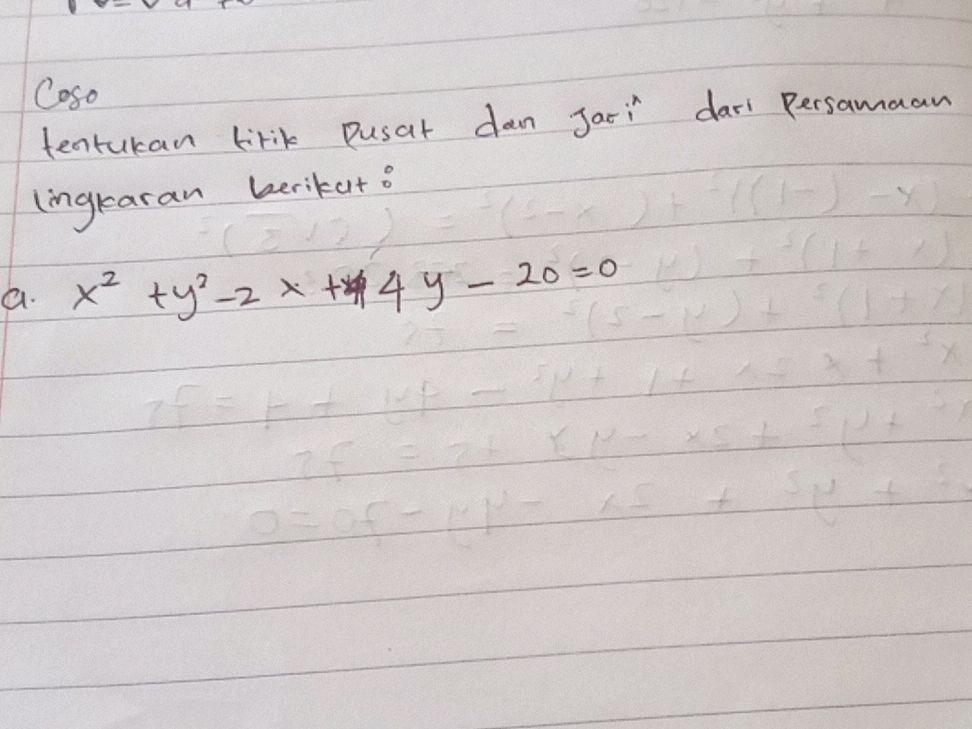 Coso
tentukan titik Pusat dan Jari^ dari Persamaan
lingkaran berikut :
a. x² + y² - 2 x + 4 y - 20 = 0